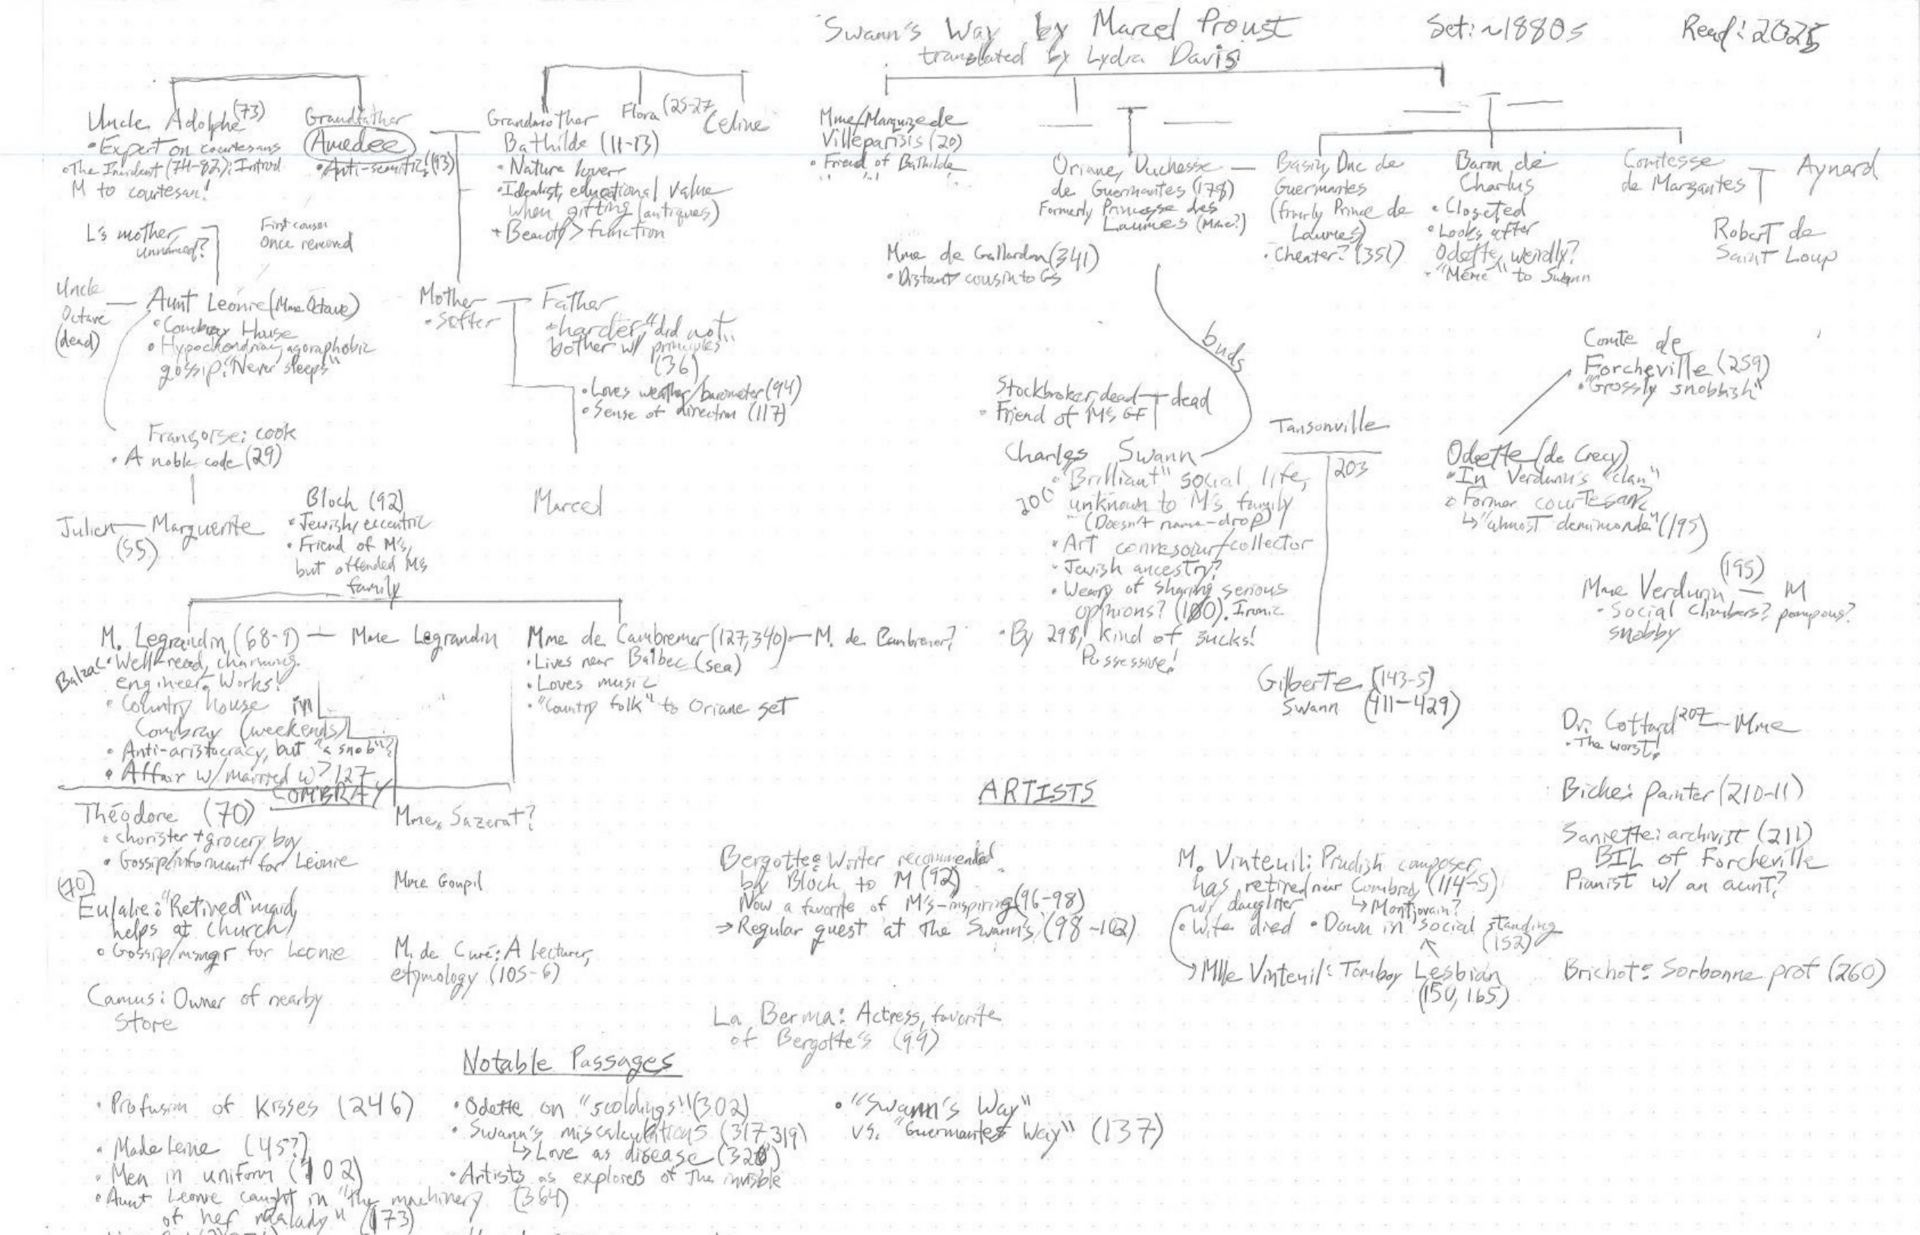 Swann's Way by Marcel Proust
translated by Lydia Davis
Set: ~1880s
Read: 2025
Uncle Adolphe (73)
• Expert on courtesans
• The Incident (74-82): Introd
M to courtesan!
Grandfather
Amedee
• Anti-semitic! (93)
Grandmother
Bathilde (11-13)
• Nature lover
• Idealist, educational value
when gifting (antiques)
+ Beauty > function
Flora (25-27)
Celine
Mme/Marquize de
Villeparisis (20)
• Friend of Bathilde
Oriane, Duchesse
de Guermantes (178)
Formerly Princesse des
Laumes (Mme?)
Basin, Duc de
Guermantes
(frmrly Prince de
Laumes)
• Cheater? (351)
Baron de
Charlus
• Closeted
• Looks after
Odette, weirdly?
• "Meme" to Swann
Comtesse
de Marsantes
Aynard
Robert de
Saint Loup
L's mother,
unnamed?
First cousin
Once removed
Mme de Gallardon (341)
• Distant cousin to Gs
Uncle
Octave
(dead)
Aunt Leonie (Mme Octave)
• Combray House
• Hypochondriac, agoraphobic
gossip. "Never sleeps"
Mother
• Softer
Father
• harder, "did not
bother w/ principles"
(36)
• Loves weather/barometer (94)
• Sense of direction (117)
buds
Comte de
Forcheville (259)
• "Grossly snobbish"
Stockbroker, dead
• Friend of M's GF
dead
Tansonville
203
Françoise: cook
• A noble code (29)
Charles Swann
• "Brilliant" social life,
unknown to M's family
(Doesn't name-drop)
• Art connesoiur/collector
• Jewish ancestry?
• Weary of sharing serious
opinions? (100). Ironic
• By 298, kind of sucks!
Possessive!
Odette (de Crecy)
• In Verdurin's "clan"
• Former courtesan?
↳ "almost demimonde" (195)
Julien — Marguerite
(55)
Bloch (92)
• Jewish, eccentric
• Friend of M's,
but offended M's
family
Marcel
(195)
Mme Verdurin — M
• Social climbers? pompous?
snobby
M. Legrandin (68-9) — Mme Legrandin
Balzac
• Well-read, charming
engineer. Works!
• Country House in
Combray (weekends)
• Anti-aristocracy, but "a snob"?
• Affair w/ married w? 127
Mme de Cambremer (127, 340) — M. de Cambremer?
• Lives near Balbec (sea)
• Loves music
• "Country folk" to Oriane set
Gilberte (143-5)
Swann (411-429)
Dr. Cottard 202 — Mme
• The worst!
COMBRAY
Théodore (70)
• chorister + grocery boy
• Gossip/informant for Leonie
(70)
Eulalie: "Retired" maid,
helps at church
• Gossip/msngr for Leonie
Camus: Owner of nearby
store
Mme. Sazerat?
Mme Goupil
M. de Curé: A lecturer,
etymology (105-6)
ARTISTS
Bergotte: Writer recommended
by Bloch to M (92)
Now a favorite of M's-inspiring (96-98)
→ Regular guest at the Swann's (98-102)
La Berma: Actress, favorite
of Bergotte's (99)
M. Vinteuil: Prudish composer,
has retired near Combray (114-5)
w/ daughter
↳ Montjouvain?
• Wife died • Down in social standing
(152)
Mlle Vinteuil: Tomboy Lesbian
(150, 165)
Biche: Painter (210-11)
Saniette: archivist (211)
BIL of Forcheville
Pianist w/ an aunt?
Brichot: Sorbonne prof (260)
Notable Passages
• Profusion of Kisses (246)
• Madeleine (45?)
• Men in uniform (102)
• Aunt Leonie caught in "the machinery
of her malady" (173)
• Odette on "scoldings" (302)
• Swann's miscalculations (317, 319)
↳ Love as disease (320)
• Artists as explorers of the invisible
(364)
• "Swann's Way"
vs. "Guermantes Way" (137)